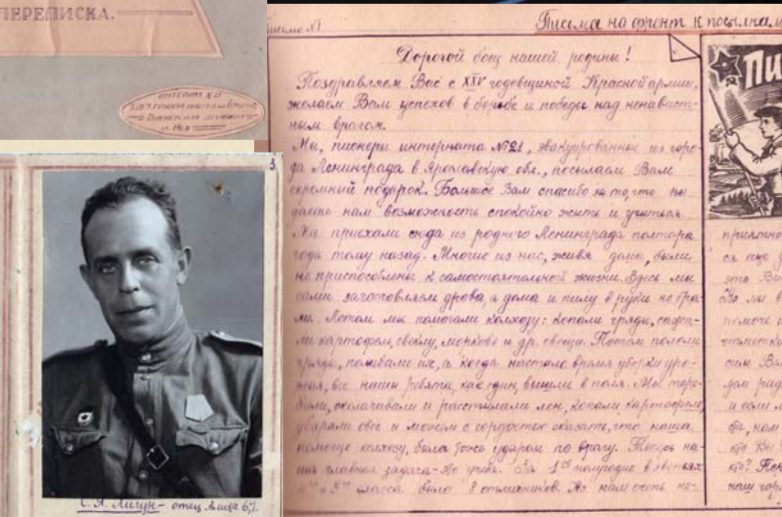 ПЕРЕПИСКА.
3.
отец Алика 6 л.
Письма на фронт к посылкам
Дорогой боец нашей родины!
Поздравляем Вас с XXIV годовщиной Красной армии,
желаем Вам успехов в борьбе и победы над ненавист-
ным врагом.
Мы, пионеры интерната №21, эвакуированные из горо-
да Ленинграда в Ярославскую обл., посылаем Вам
скромный подарок. Большое Вам спасибо за то, что вы
даёте нам возможность спокойно жить и учиться
Мы приехали сюда из родного Ленинграда полтора
года тому назад. Многие из нас, живя дома, были
не приспособлены к самостоятельной жизни. Здесь мы
сами заготовляем дрова, а дома и пилу в руки не бра-
ли. Летом мы помогали колхозу: копали гряды, сажа-
ли картофель, свёклу, морковь и др. овощи. Потом пололи
гряды, поливали их, а когда настало время уборки уро-
жая, все наши ребята, как один, вышли в поля. Мы тере-
били, околачивали и расстилали лен, копали картофель,
убирали овёс и можем с гордостью сказать, что наша
помощь колхозу, была тоже ударом по врагу. Теперь на-
ша главная задача - это учёба. За 1ое полугодие в звеньях
класса было 8 отличников. Но нам очень не-
ПИ
приятно
ся еще
это В
Но мы
помочь
отметки
сим Вам
дам
и если
фа, нам
кто Вы
наш гор